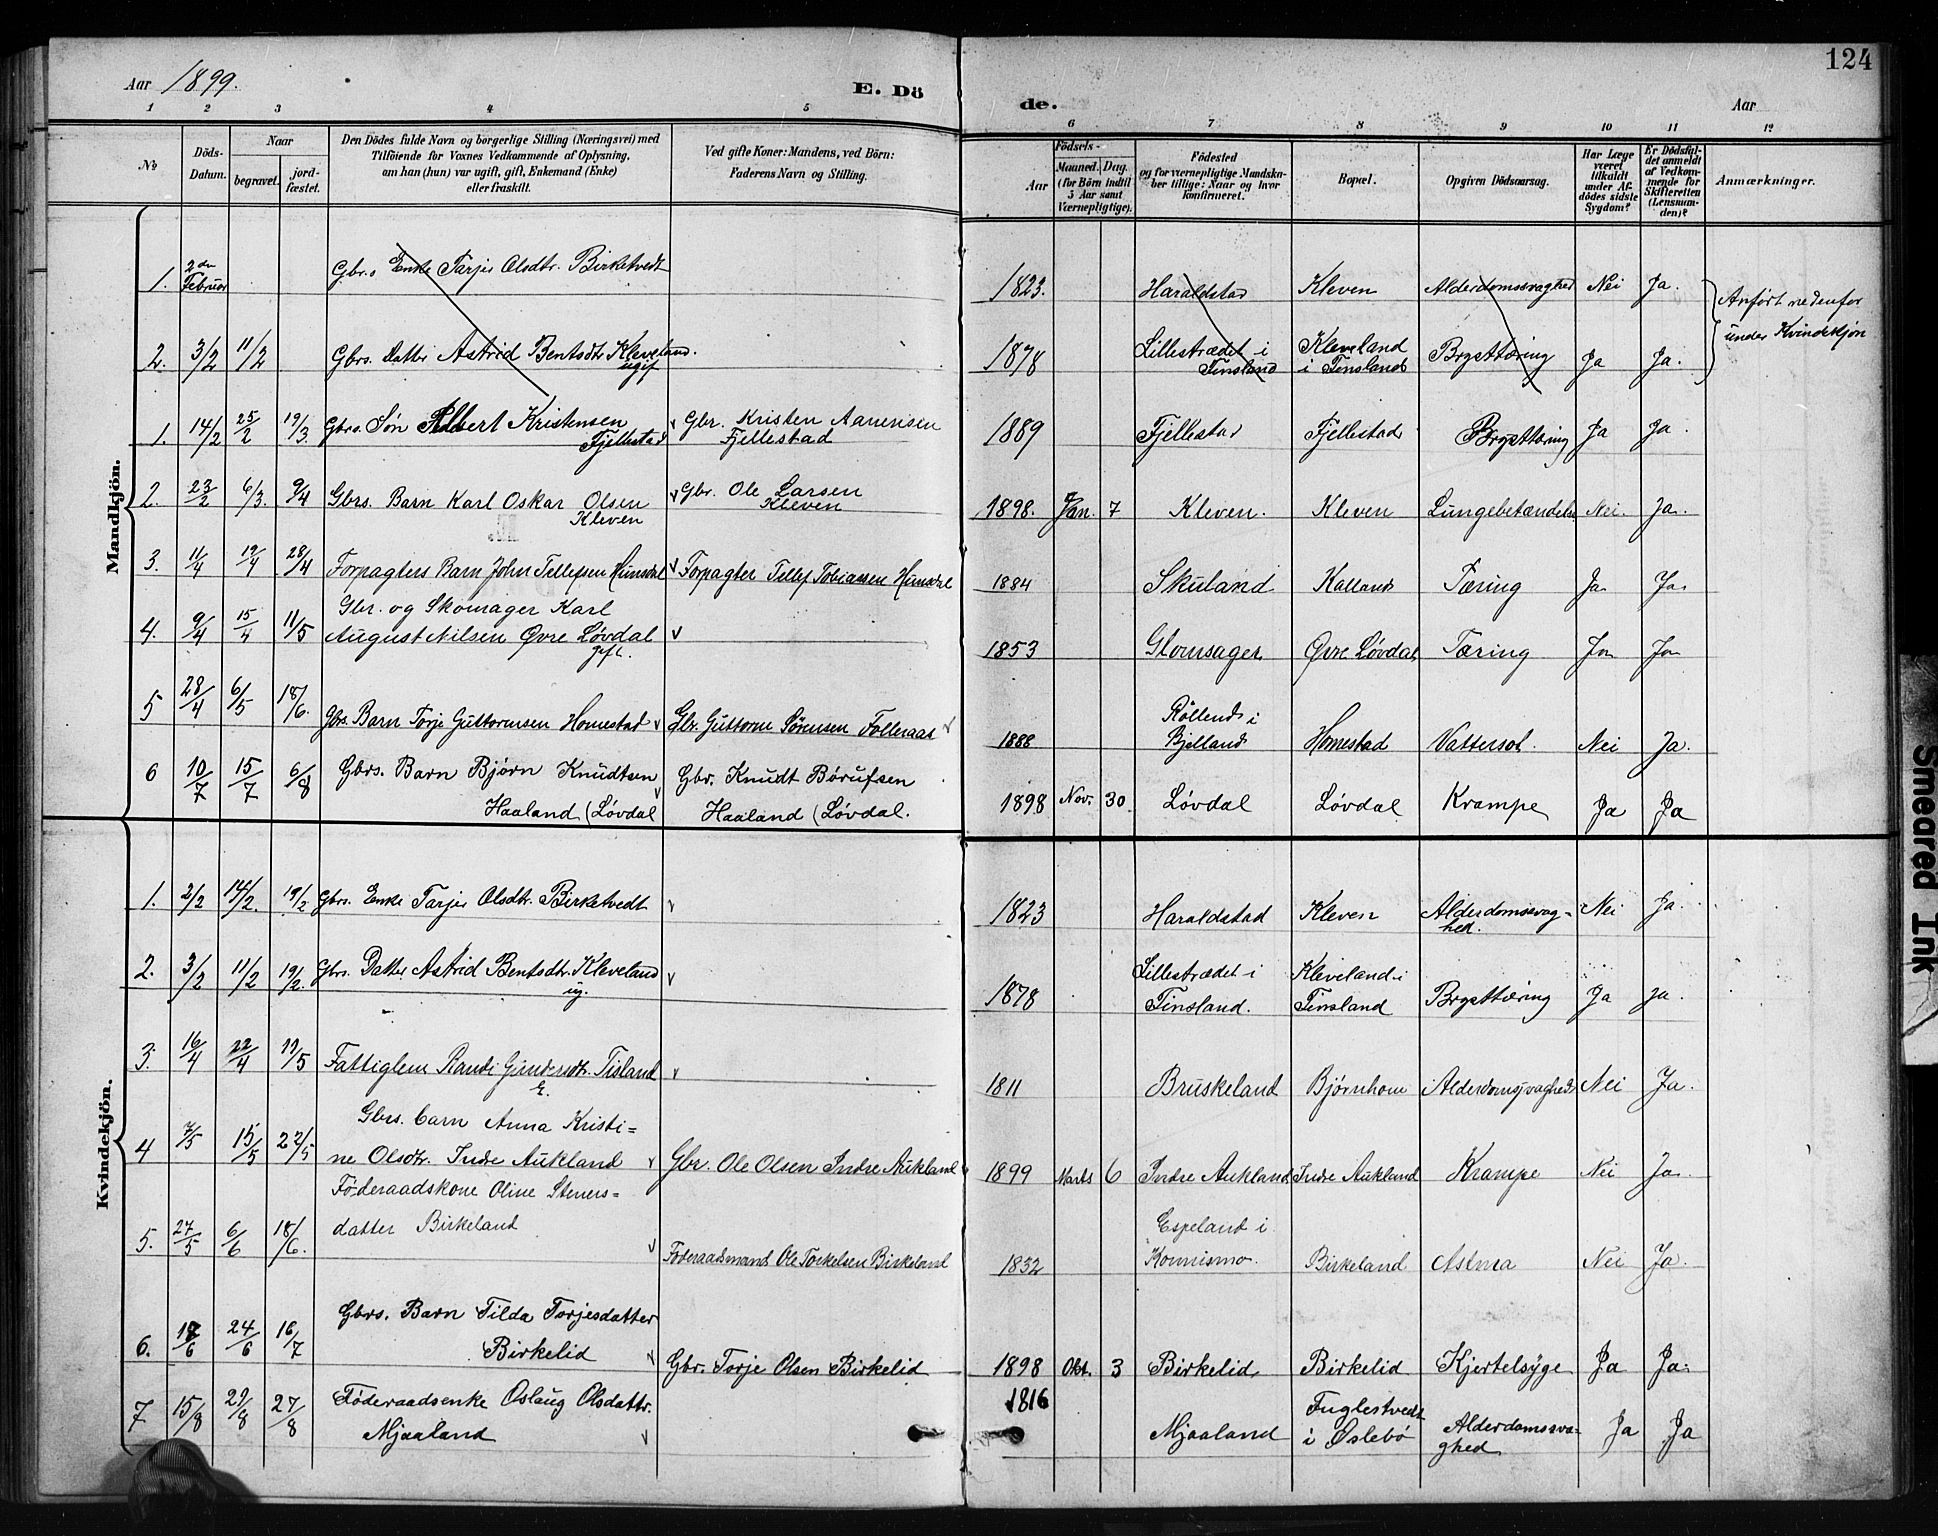 124
Aar 1899.
E. Dö
de.
Aar
1 2 3 4 5 6 7 8 9 10 11 12
№
Döds-Datum.
Naar
begravet.
jord-fæstet.
Den Dödes fulde Navn og borgerlige Stilling (Næringsvei) med
Tilföiende for Voxnes Vedkommende af Oplysning,
om han (hun) var ugift, gift, Enkemand (Enke)
eller fraskilt.
Ved gifte Koner: Mandens, ved Börn:
Faderens Navn og Stilling.
Födsels-
Aar
Maaned. Dag.
(for Börn indtil
5 Aar samt
Værnepligtige).
Födested
og for værnepligtige Mandska-
ber tillige: Naar og hvor
konfirmeret.
Bopæl.
Opgiven Dödsaarsag.
Har Læge
været
tilkaldt
under Af-
dödes sidste
Sygdom?
Er Dödsfal-
det anmeldt
af Vedkom-
mende for
Skifteretten
(Lensman-
den)?
Anmærkninger.
1. 2den Februar Gbr.s Enke Tarjer Olsdtr. Birketvedt 1823. Haraldstad Kleven Alderdomssvaghed Nei Ja. Anført nedenfor
under Kvindekjøn
2. 3/2 11/2 Gbrs. Datter Astrid Bentsdtr Kleveland. ugif 1878 Lillestrædet i Finsland Kleveland i Finsland Brysttæring Ja Ja.
Mandkjön.
1. 14/2 25/2 19/3 Gbrs. Søn Albert Kristensen Fjellestad Gbr. Kristen Aanensen Fjellestad 1889 Fjellestad Fjellestad Brysttæring Ja Ja.
2. 23/2 6/3. 9/4 Gbrs. Barn Karl Oskar Olsen Kleven Gbr. Ole Larsen Kleven 1898. Jan. 7 Kleven. Kleven Lungebetændelse Nei. Ja.
3. 11/4 19/4 28/4 Forpagters Barn John Tellefsen Hunsdal Forpagter Tellef Tobiassen Hunsdal 1884 Skuland Kalland Tæring Ja Ja
4. 9/4 15/4 11/5 Gbr. og Skomager Karl
August Nilsen Øvre Løvdal gift. 1853 Glomsager Øvre Løvdal Tæring Ja Ja
5 28/4 6/5 18/6. Gbrs. Barn Torje Guttormsen Homestad Gbr. Guttorm Sørensen Følleraas 1888 Røllend i Bjelland Homestad Vattersot. Nei Ja.
6 10/7 15/7 6/8 Gbrs. Barn Bjørn Knudtsen
Haaland (Løvdal Gbr. Knudt Børufsen
Haaland (Løvdal. 1898 Nov. 30 Løvdal Løvdal Krampe Ja Ja
Kvindekjön.
1. 2/2 14/2. 19/2 Gbrs. Enke Tarjer Olsdtr. Birketvedt 1823 Haraldstad Kleven Alderdomssvag=
hed. Nei Ja.
2. 3/2 11/2 19/2. Gbrs. Datter Astrid Bentsdtr. Kleveland ug. 1878 Lillestrædet i Finsland. Kleveland i Finsland Brysttæring Ja Ja.
3. 16/4 22/4 19/5 Fattiglem Randi Gundersdtr. Tisland E. 1811 Bruskeland Bjørnhom Alderdomsvaghed Nei Ja.
4 7/5 15/5 22/5 Gbrs. barn Anna Kristi=
ne Olsdtr. Indre Aukland Gbr. Ole Olsen Indre Aukland 1899 Marts 6 Indre Aukland Indre Aukland Krampe Nei Ja
5. 27/5 6/6 18/6. Föderaadskone Oline Steners=
datter Birkeland Föderaadsmand Ole Torkelsen Birkeland 1832 Espeland i Konnismo. Birkeland Astma Nei Ja.
6. 18/6 24/6 16/7 Gbrs. Barn Tilda Torjesdatter
Birkelid Gbr. Torje Olsen Birkelid 1898 Okt. 3 Birkelid Birkelid Kjertelsyge Ja Ja.
7 15/8 29/8 27/8 Föderaadsenke Oslaug Olsdattr.
Mjaaland 1816 Mjaaland Fuglestvedt i Øslebö Alderdomssva=
ghed Ja Ja
Smeared Ink